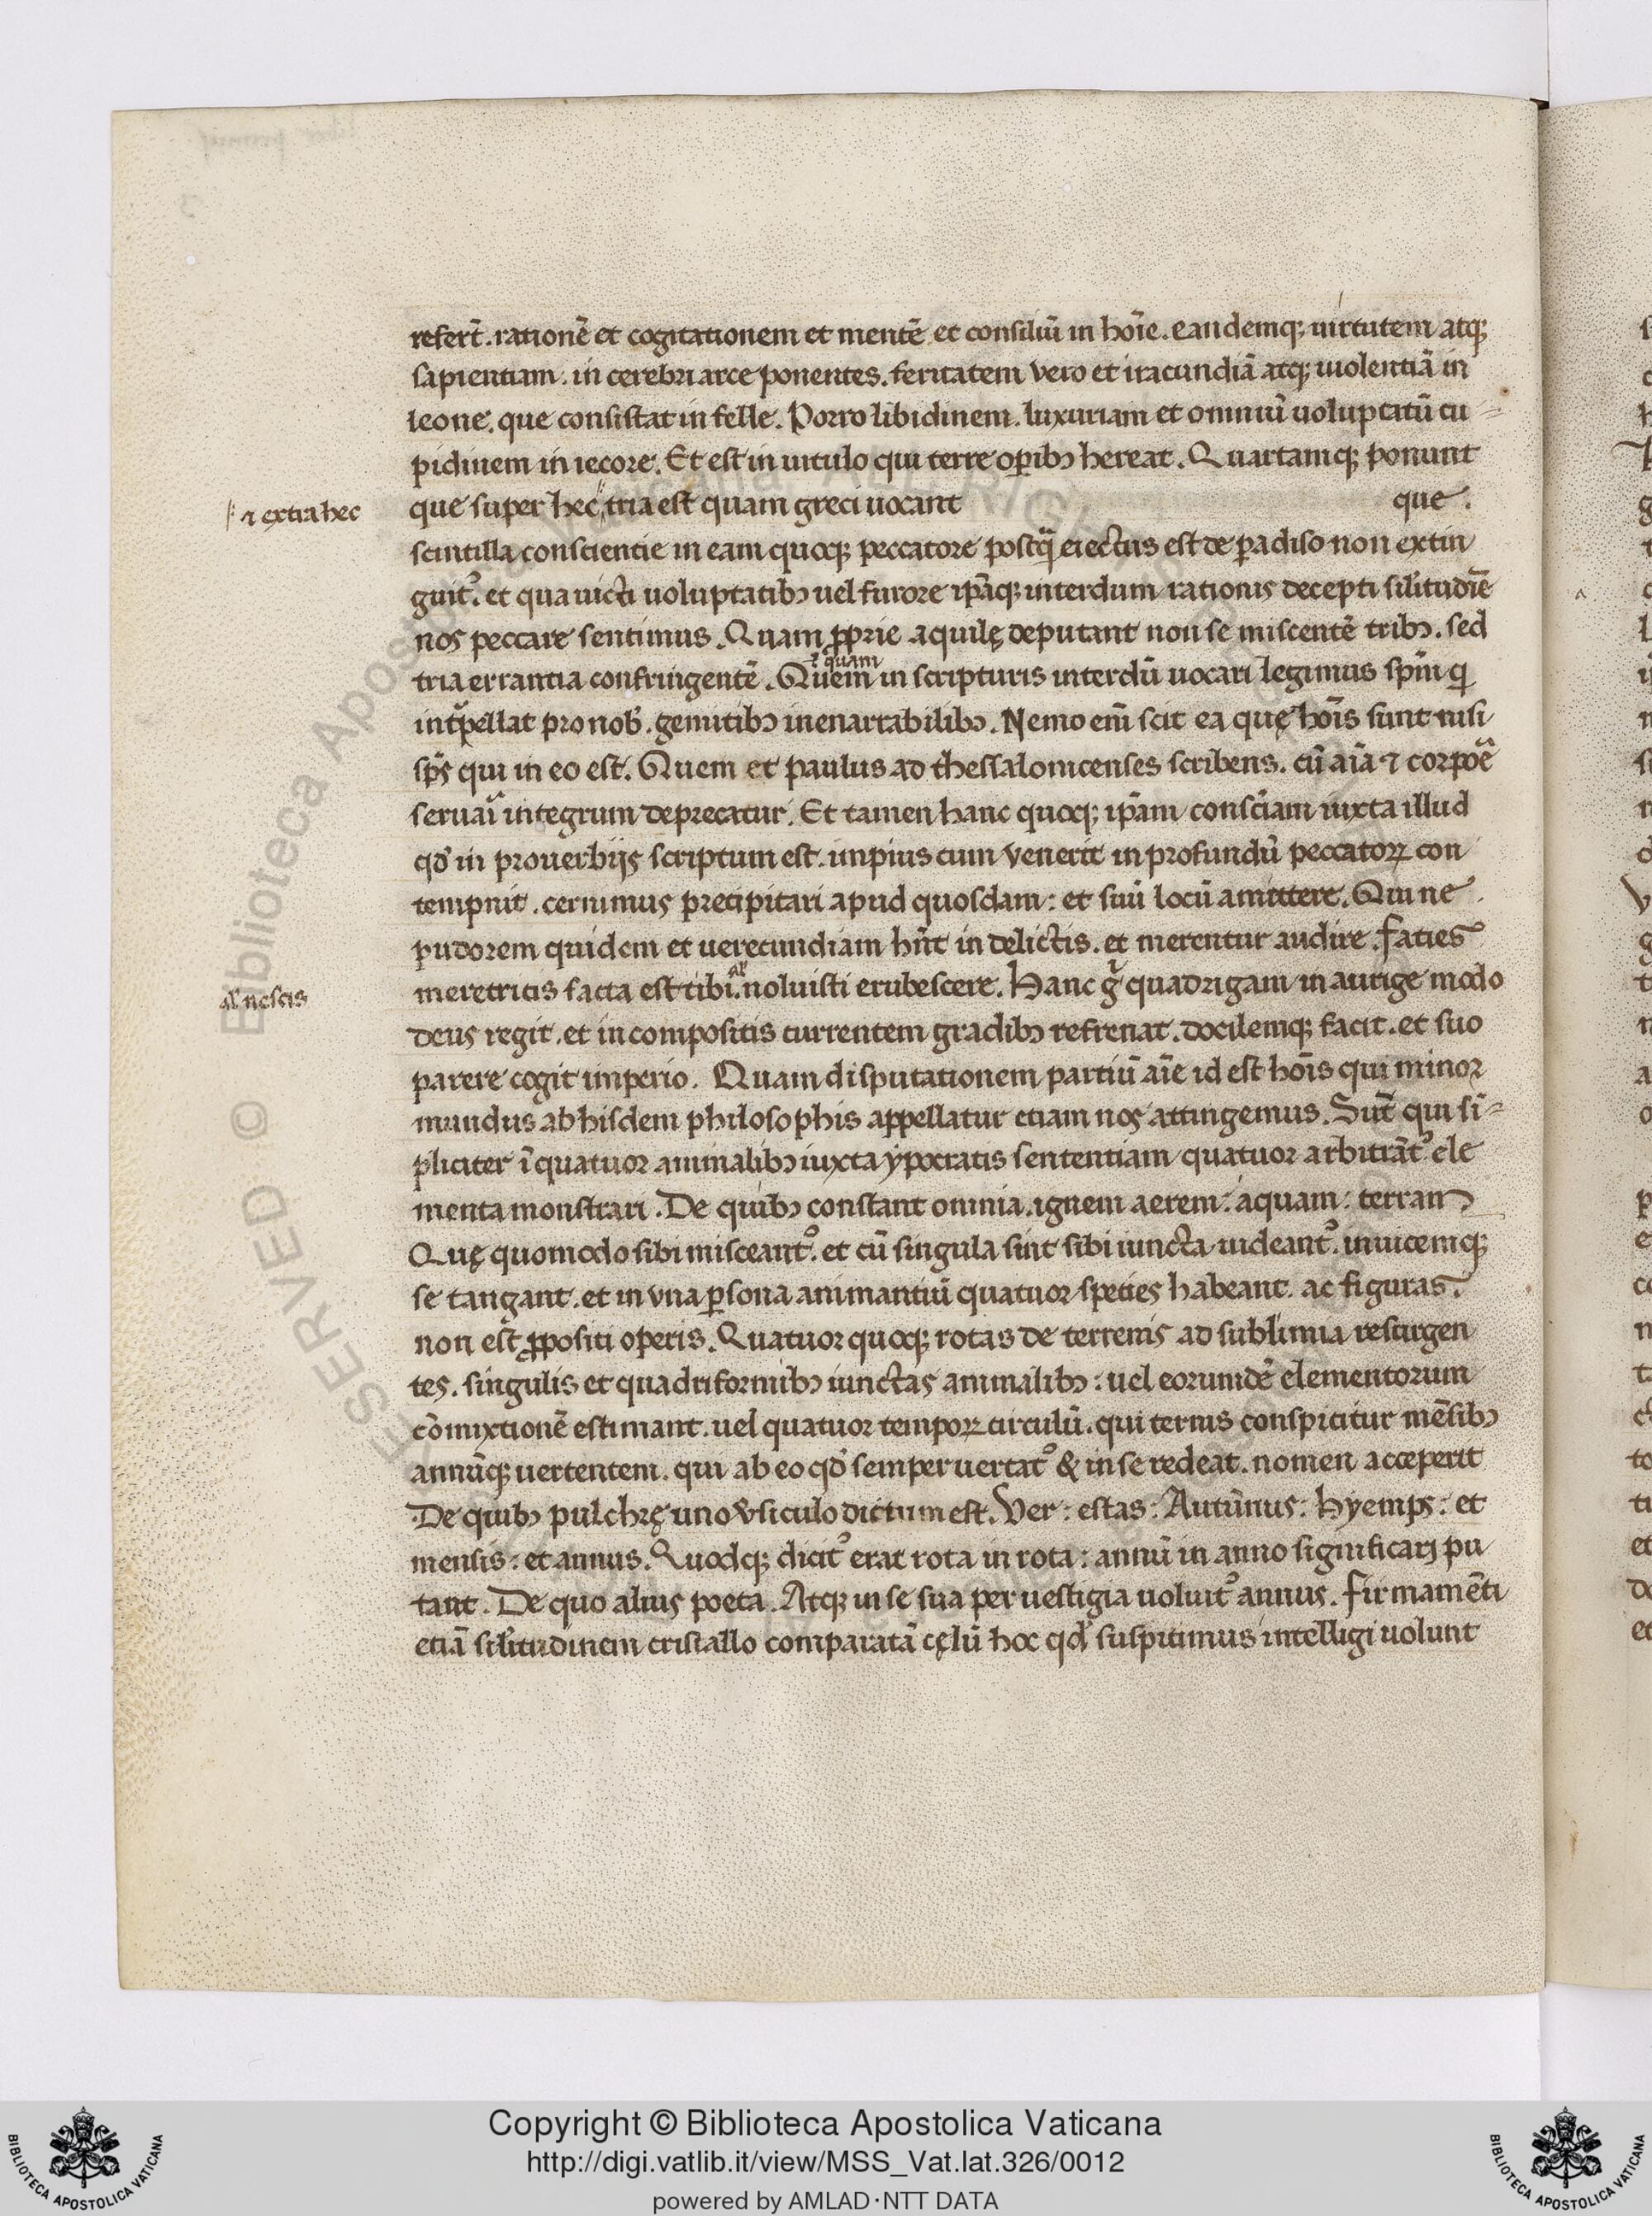 refert̄. rationē et cogitationem et mentē et consiliū in hoīe. eandemq; uirtutem atq;
sapientiam. in cerebri arce ponentes. feritatem vero et iracundiā atq; uiolentiā in
leone. que consistat in felle. Porro libidinem. luxuriam et omniū uoluptatū cu=
pidinem in iecore. Et est in uitulo qui terre oꝑibꝫ hereat. Quartamq; ponunt
⁊ extra hec
que super hec tria est quam greci uocant que.
scintilla conscientie in eam quoq; peccatore postq̄ eiectus est de ꝑadiso non extin
guit᷒. et qua uicti uoluptatibꝫ uel furore ip̄aq; interdum rationis decepti sił̄itudīe
nos peccare sentimus. Quam ꝓprie aquilę deputant non se miscentē tribꝫ. sed
⁊ quam
tria errantia confringentē. Quem in scripturis interdū uocari legimus sp̄m q̄
int̄pellat pro nob̄. gemitibꝫ inenarrabilibꝫ. Nemo em̄ scit ea quę hoīs sunt nisi
sp̄s qui in eo est. Quem et paulus ad thessalonicenses scribens. cū aīa ⁊ corpoē
seruaī integrum deprecatur. Et tamen hanc quoq; ip̄am consc̄iam iuxta illud
qd̄ in prouerbijs scriptum est. impius cum venerit in profundū peccatoꝝ con
tempnit. cernimus precipitari apud quosdam: et suū locū amittere. Qui ne
pudorem quidem et uerecundiam hn̄t in delictis. et merentur audire. facies
al' nescis
meretricis facta est tibi. noluisti erubescere. Hanc g̊ quadrigam in aurige modo
deus regit. et incompositis currentem gradibꝫ refrenat. docilemq; facit. et suo
parere cogit imperio. Quam disputationem partiū aīe id est hoīs qui minor
mundus ab hisdem philosophis appellatur etiam nos attingemus. Sūt qui sī=
pliciter ī quatuor animalibꝫ iuxta ypocratis sententiam quatuor arbitrāt᷒ ele
menta monstrari. De quibꝫ constant omnia. ignem aerem: aquam: terram
Quę quomodo sibi misceant᷒. et cū singula sint sibi iuncta uideant᷒. inuicemq;
se tangant. et in vna ꝑsona animantiū quatuor species habeant. ac figuras.
non est ꝓpositi operis. Quatuor quoq; rotas de terrenis ad sublimia resurgen
tes. singulis et quadriformibꝫ iunctas animalibꝫ: uel eorumdē elementorum
cōmixtionē estimant. uel quatuor tempoꝝ circulū. qui ternis conspicitur mēsibꝫ
annūq; uertentem. qui ab eo qd̄ semper uertat᷒ & in se redeat. nomen acceperit
De quibꝫ pulchrę uno v̄siculo dictum est. Ver: estas: Autūnus: hyemps: et
mensis: et annus. Quodq; dicit᷒ erat rota in rota: annū in anno significarj pu
tant. De quo alius poeta. Atq; in se sua per uestigia uoluit᷒ annus. firmamēti
etiā sił̄itudinem cristallo comparatā cęlū hoc qd̄ suspicimus intelligi uolunt
Copyright © Biblioteca Apostolica Vaticana
http://digi.vatlib.it/view/MSS_Vat.lat.326/0012
powered by AMLAD·NTT DATA
BIBLIOTECA APOSTOLICA VATICANA
BIBLIOTECA APOSTOLICA VATICANA